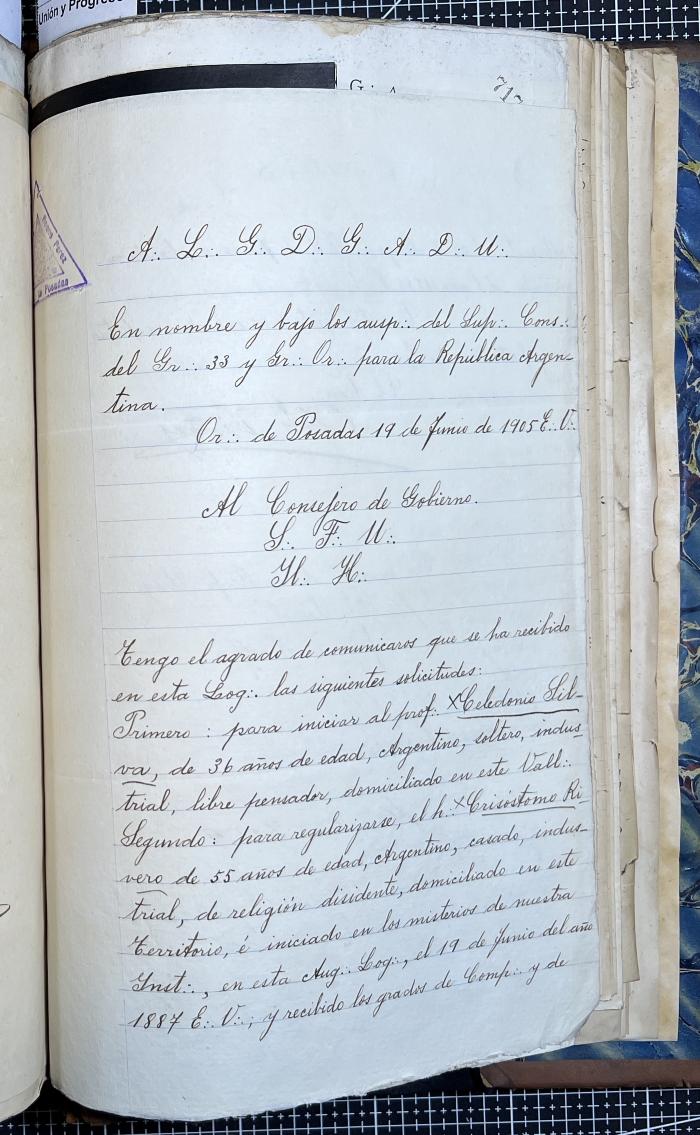 Unión y Progreso
G∴ A
717
A∴ L∴ G∴ D∴ G∴ A∴ D∴ U∴
En nombre y bajo los ausp∴ del Sup∴ Cons∴
del Gr∴ 33 y Gr∴ Or∴ para la República Argen-
tina.
Or∴ de Posadas 19 de Junio de 1905 E∴ V∴
Al Consejero de Gobierno.
S∴ F∴ U∴
H∴ H∴
Tengo el agrado de comunicaros que se ha recibido
en esta Log∴ las siguientes solicitudes:
Primero: para iniciar al prof∴ X Celedonio Sil-
va, de 36 años de edad, Argentino, soltero, indus-
trial, libre pensador, domiciliado en este Vall∴
Segundo: para regularizarse, el h∴ X Crisóstomo Ri
vero de 55 años de edad, Argentino, casado, indus-
trial, de religión disidente, domiciliado en este
Territorio, é iniciado en los misterios de nuestra
Inst∴, en esta Aug∴ Log∴, el 19 de Junio del año
1887 E∴ V∴; y recibido los grados de Comp∴ y de